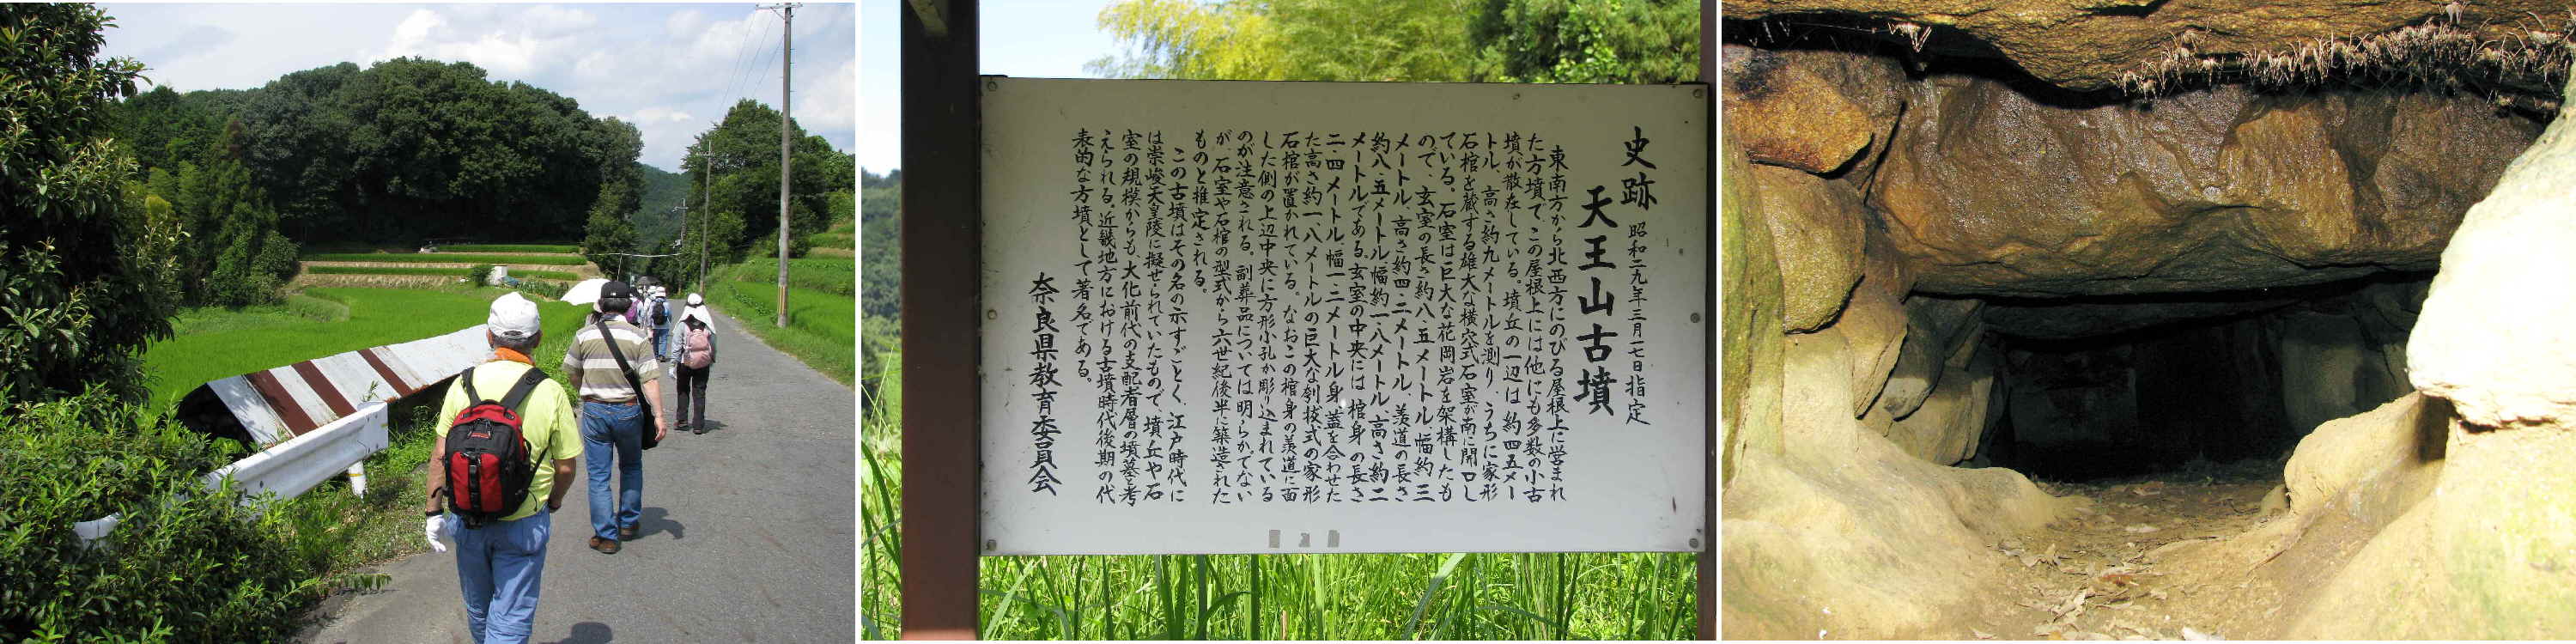 史跡 昭和二九年三月一七日指定
天王山古墳
東南方から北西方にのびる屋根上に営まれ
た方墳で、この屋根上には他にも多数の小古
墳が散在している。墳丘の一辺は約四五メー
トル、高さ約九メートルを測り、うちに家形
石棺を蔵する雄大な横穴式石室が南に開口し
ている。石室は巨大な花岡岩を架構したも
ので、玄室の長さ約八・五メートル、幅約三
メートル、高さ約四・二メートル、羨道の長さ
約八・五メートル、幅約一・八メートル、高さ約二
メートルである。玄室の中央には、棺身の長さ
二・四メートル、幅一・二メートル、身、蓋を合わせた
た高さ約一・八メートルの巨大な刳抜式の家形
石棺が置かれている。なおこの棺身の羨道に面
した側の上辺中央に方形小孔が彫り込まれている
のが注意される。副葬品については明らかでない
が、石室や石棺の型式から六世紀後半に築造された
ものと推定される。
この古墳はその名の示すごとく、江戸時代に
は崇峻天皇陵に擬せられていたもので、墳丘や石
室の規模からも、大化前代の支配者層の墳墓と考
えられる。近畿地方における古墳時代後期の代
表的な方墳として著名である。
奈良県教育委員会